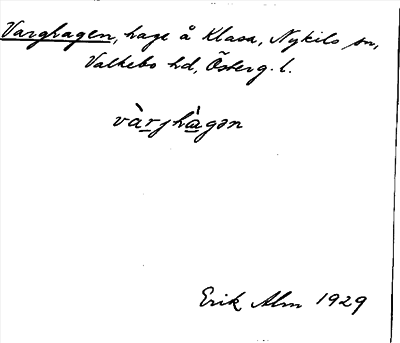 Varghagen, hage å Klasa, Nykils sn,
Valkebo hd, Österg. l.
vàrjhàgən
Erik Alm 1929